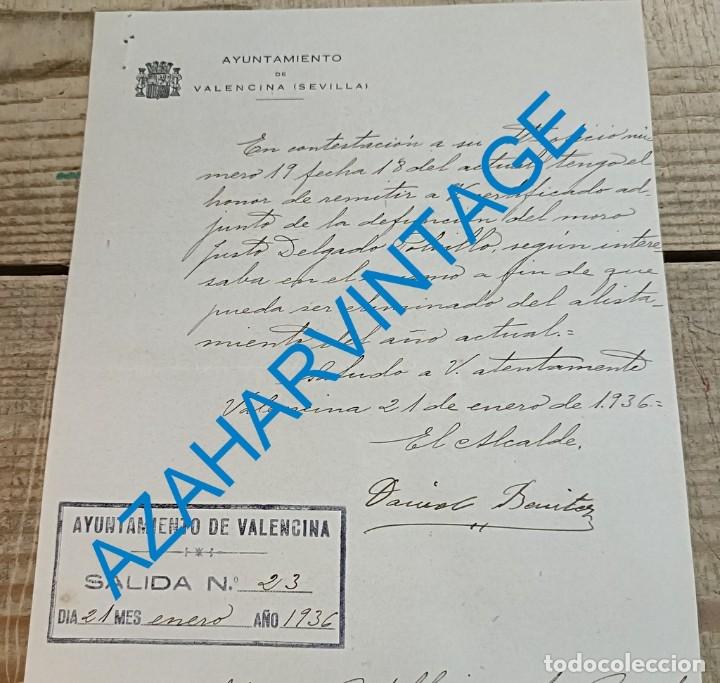 AYUNTAMIENTO
DE
VALENCINA (SEVILLA)
En contestación a su oficio nú-
mero 19 fecha 18 del actual tengo el
honor de remitir a V. certificado ad-
junto de la defunción del mozo
Justo Delgado según intere-
saba en el mismo a fin de que
pueda ser eliminado del alista-
miento del año actual.=
Saludo a V. atentamente
Valencina 21 de enero de 1.936.=
El Alcalde,
Daniel Benitez
AYUNTAMIENTO DE VALENCINA
SALIDA N.º 23
DIA 21 MES enero AÑO 1936
AZAHARVINTAGE
todocoleccion